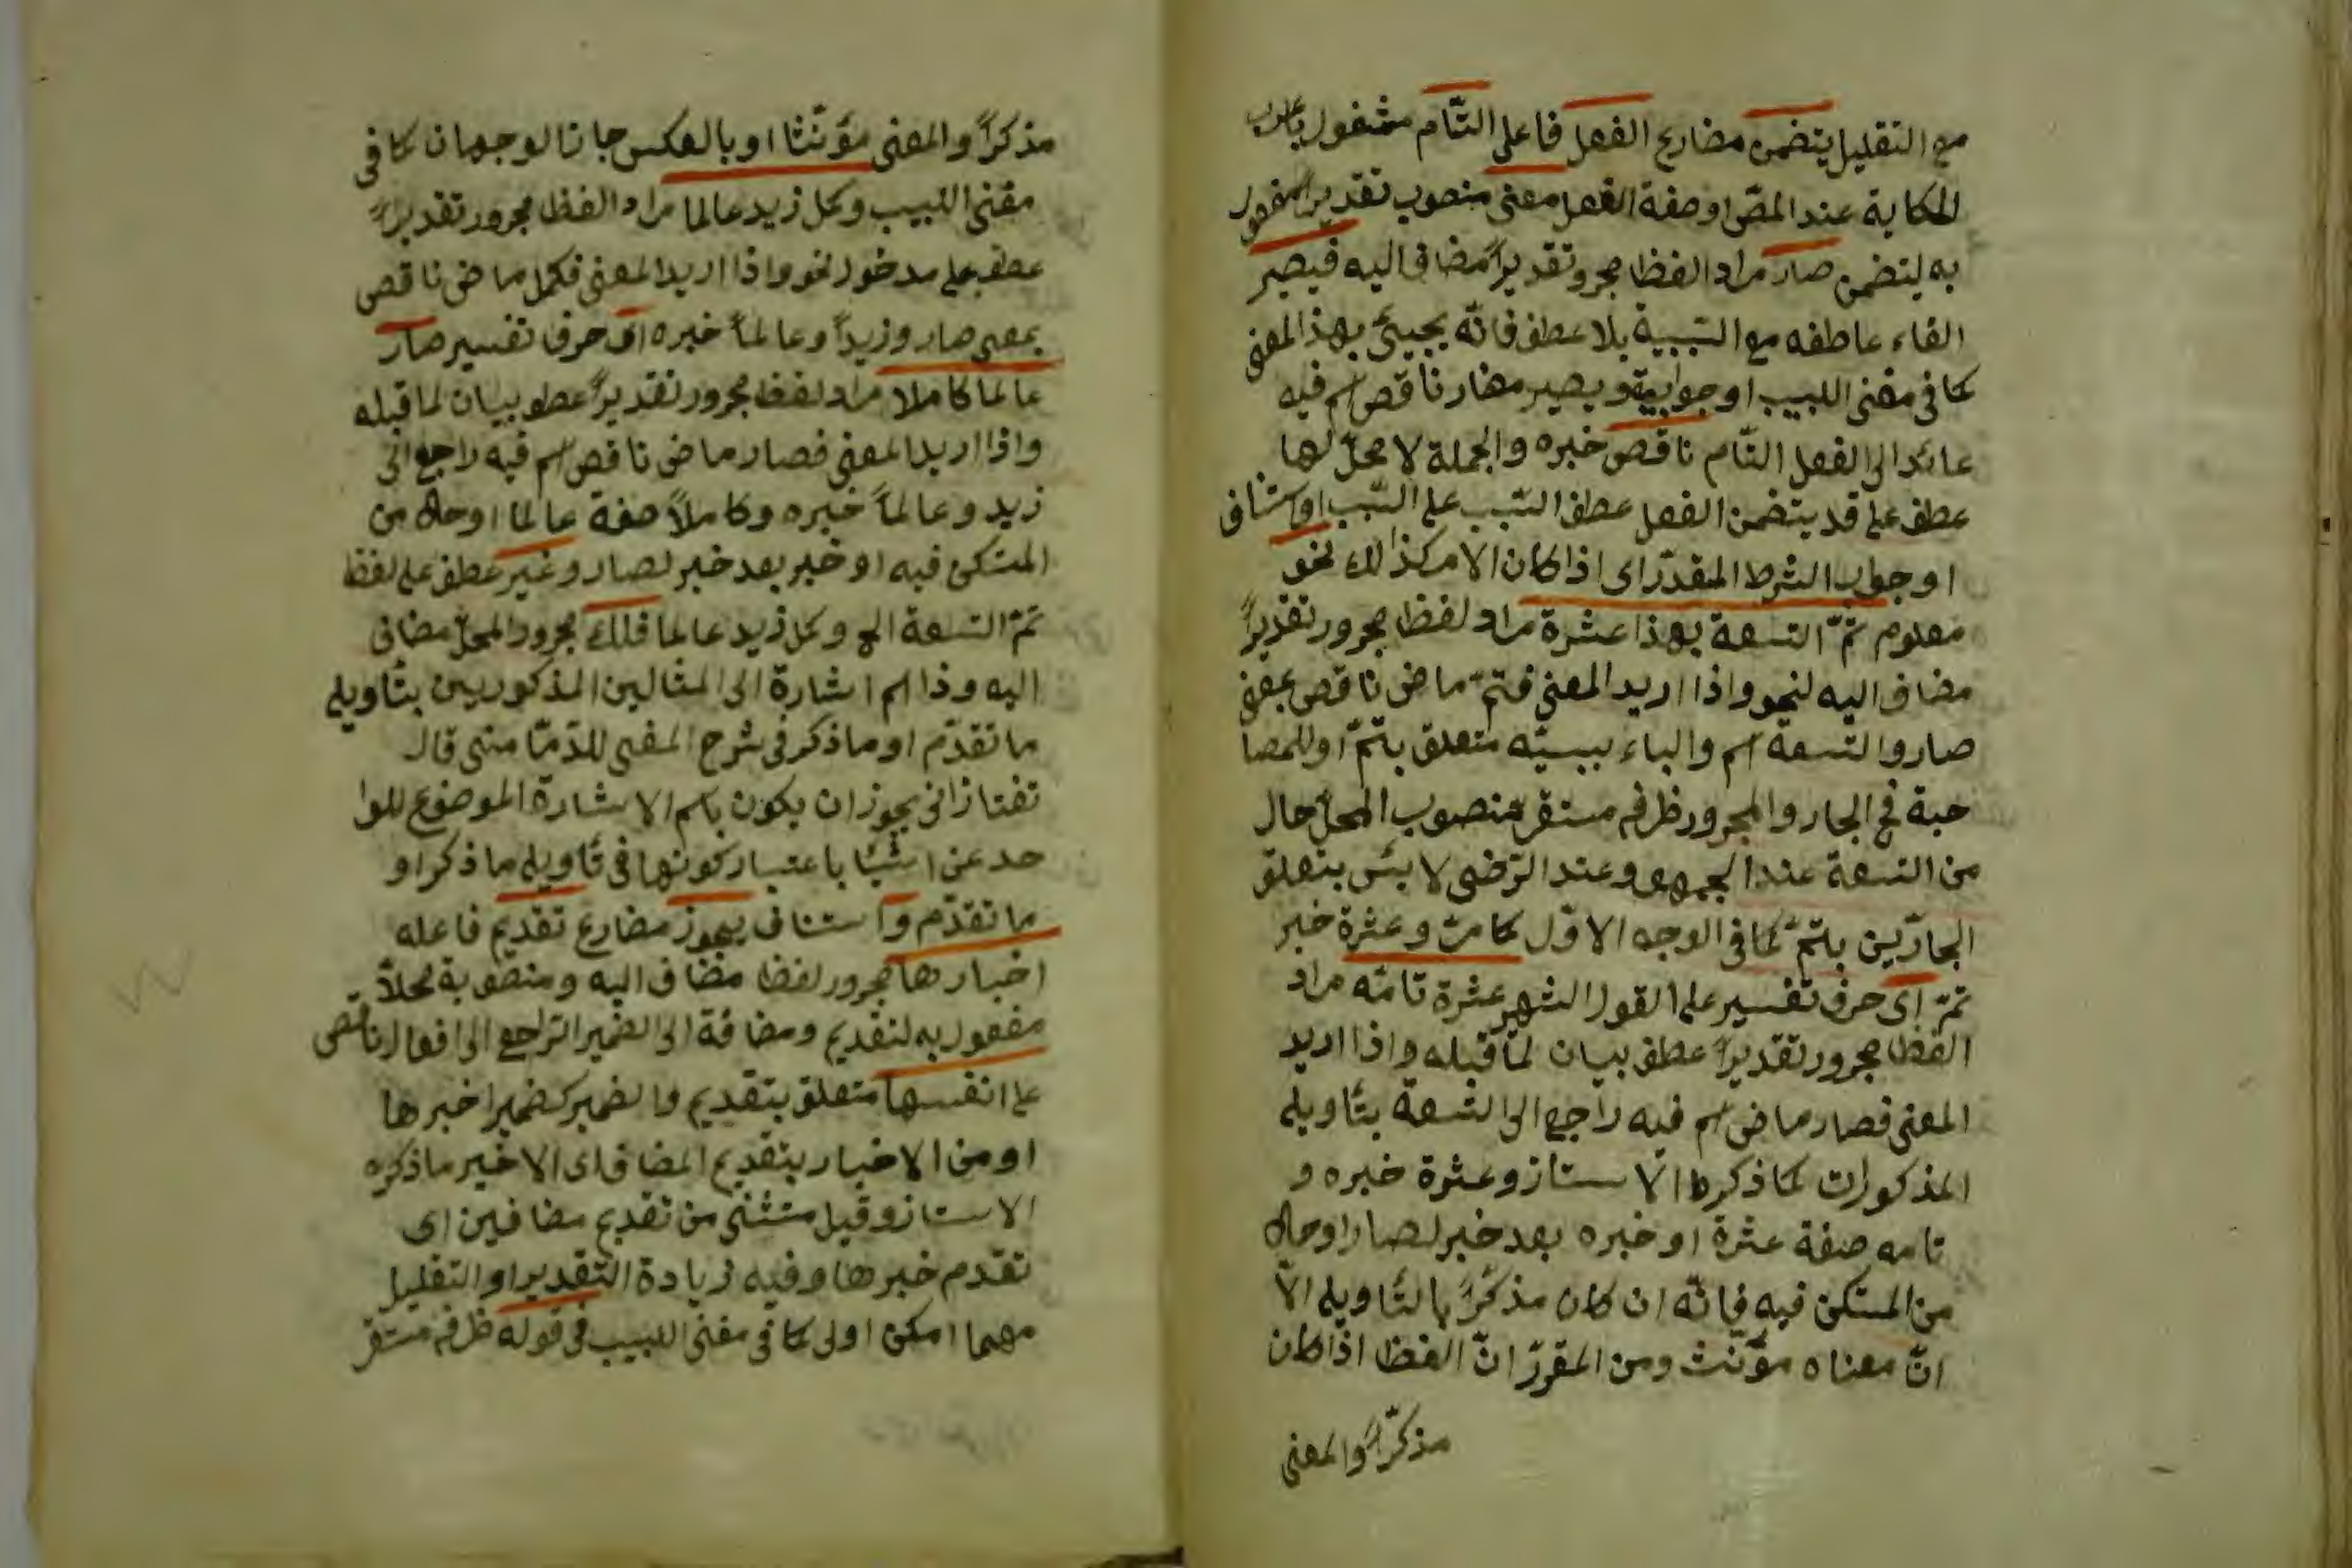 مع التقليل يتضمن مضارع الفعل فاعل التام مشغول باعراب
الحكاية عند المص او صفة الفعل معنى منصوب تقديرا مفعول
به ليتضمن صار مراد الفظ مجرور تقديراً مضاف اليه فيصير
الفاء عاطفه مع السببية بلا عطف فانّه يجيئ بهذ المعنى
كما فى مغنى اللبيب او جوابية ويصير مضار ناقص اسم فيه
عائد الى الفعل التّام ناقص خبره والجملة لا محلّ لها
عطف على قد يتضمن الفعل عطف السّبب على السّبب او استناف
او جواب الشرط المقدّر اى اذا كان الامر كذالك نحو
معلوم تمّ التسعة بهذا عشرة مراد لفظ مجرور تقديراً
مضاف اليه لنحو واذا اريد المعنى فتمّ ماض ناقص بمعنى
صار والتسعة اسم والباء سببيّه متعلق بتمّ او للمصا
حبة فح الجار والمجرور ظرف مستقر منصوب المحلّ حال
من التسعة عند الجمهور وعند الرّضى لا بئس بتعلق
الجارّين بتمّ كما فى الوجه الاوّل كما مرّ وعشرة خبر
تمّ اى حرف تفسير على القول الشهر عشرة تامّه مراد
الفظ مجرور تقديراً عطف بيان لما قبله واذا اريد
المعنى فصار ماض اسم فيه راجع الى التسعة بتأويل
المذكورات كما ذكره الاستاز وعشرة خبره و
تامه صفة عشرة او خبره بعد خبر لصار او حال
من المستكن فيه فانّه ان كان مذكراً بالتأويل الّا
انّ معناه مؤنّث ومن المقرّر انّ الفظ اذا كان
مذكّراً والمعنى
مذكراً والمعنى مؤنّثا او بالعكس جاز الوجهان كما فى
مغنى اللبيب وكمل زيد عالما مراد الفظ مجرور تقديراً
عطف على مدخول نحو واذا اريد المعنى فكمل ماض ناقص
بمعنى صار وزيداً وعالماً خبره اى حرف تفسير صار
عالما كاملا مراد لفظ مجرور تقديراً عطو بيان لما قبله
واذا اريد المعنى فصار ماض ناقص اسم فيه راجع الى
زيد وعالماً خبره وكاملاً صفة عالما او حال من
المتسكن فيه او خبر بعد خبر لصار وغير عطف على لفظ
تمّ التسعة الح وكمل زيد عالما فلك مجرور المحلّ مضاف
اليه وذا اسم اشارة الى المثالين المذكوريين بتأويل
ما تقدّم او ما ذكر فى شرح المغنى للدّمّامتنى قال
تفتازانى يجوز ان يكون باسم الاشارة الموضوع للوا
حد عن اشيا باعتبار كونها فى تأويل ما ذكر او
ما تقدّم و استناف يجوز مضارع تقديم فاعله
اخبارها مجرور لفظا مضاف اليه ومنصوبة محلاّ
مفعول به لتقديم ومضافة الى الضمير الرّاجع الى افعال ناقص
على انفسها متعلق بتقديم والضمير كضمير اخبرها
او من الاخبار بتقديم المضاف اى الاخير ما ذكره
الاستاز وقيل مستثنى من تقديم مضافين اى
تقدم خبرها وفيه زيادة التقدير او التقليل
مهما امكن اولى كما فى مغنى اللبيب فى قوله ظرف مستقر